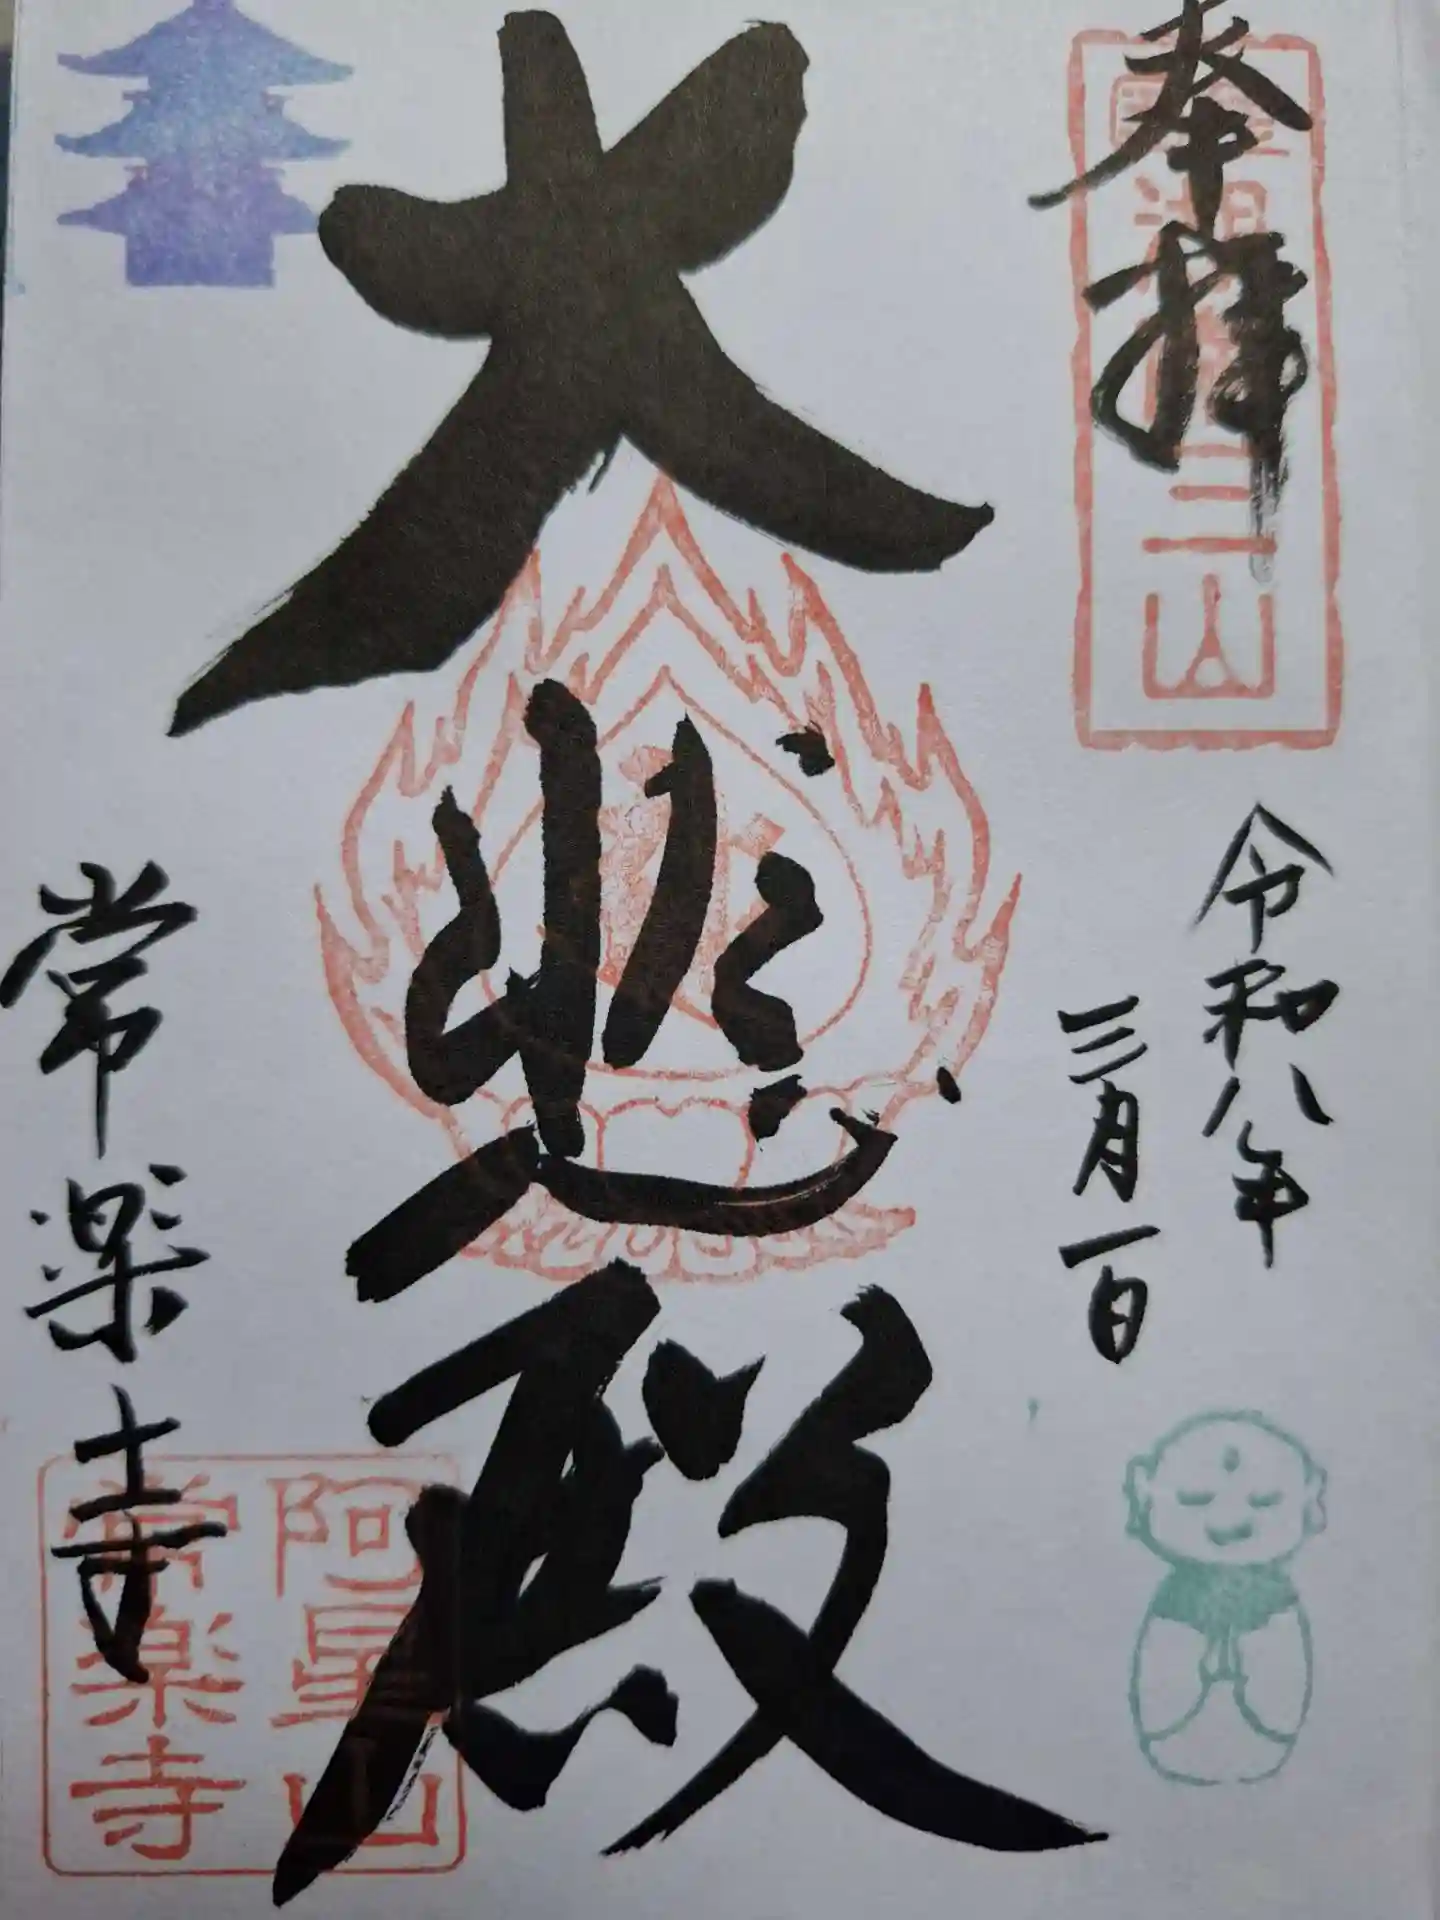 奉拝
湖南三山
令和八年
三月一日
大悲殿
常楽寺
阿星山
常楽寺